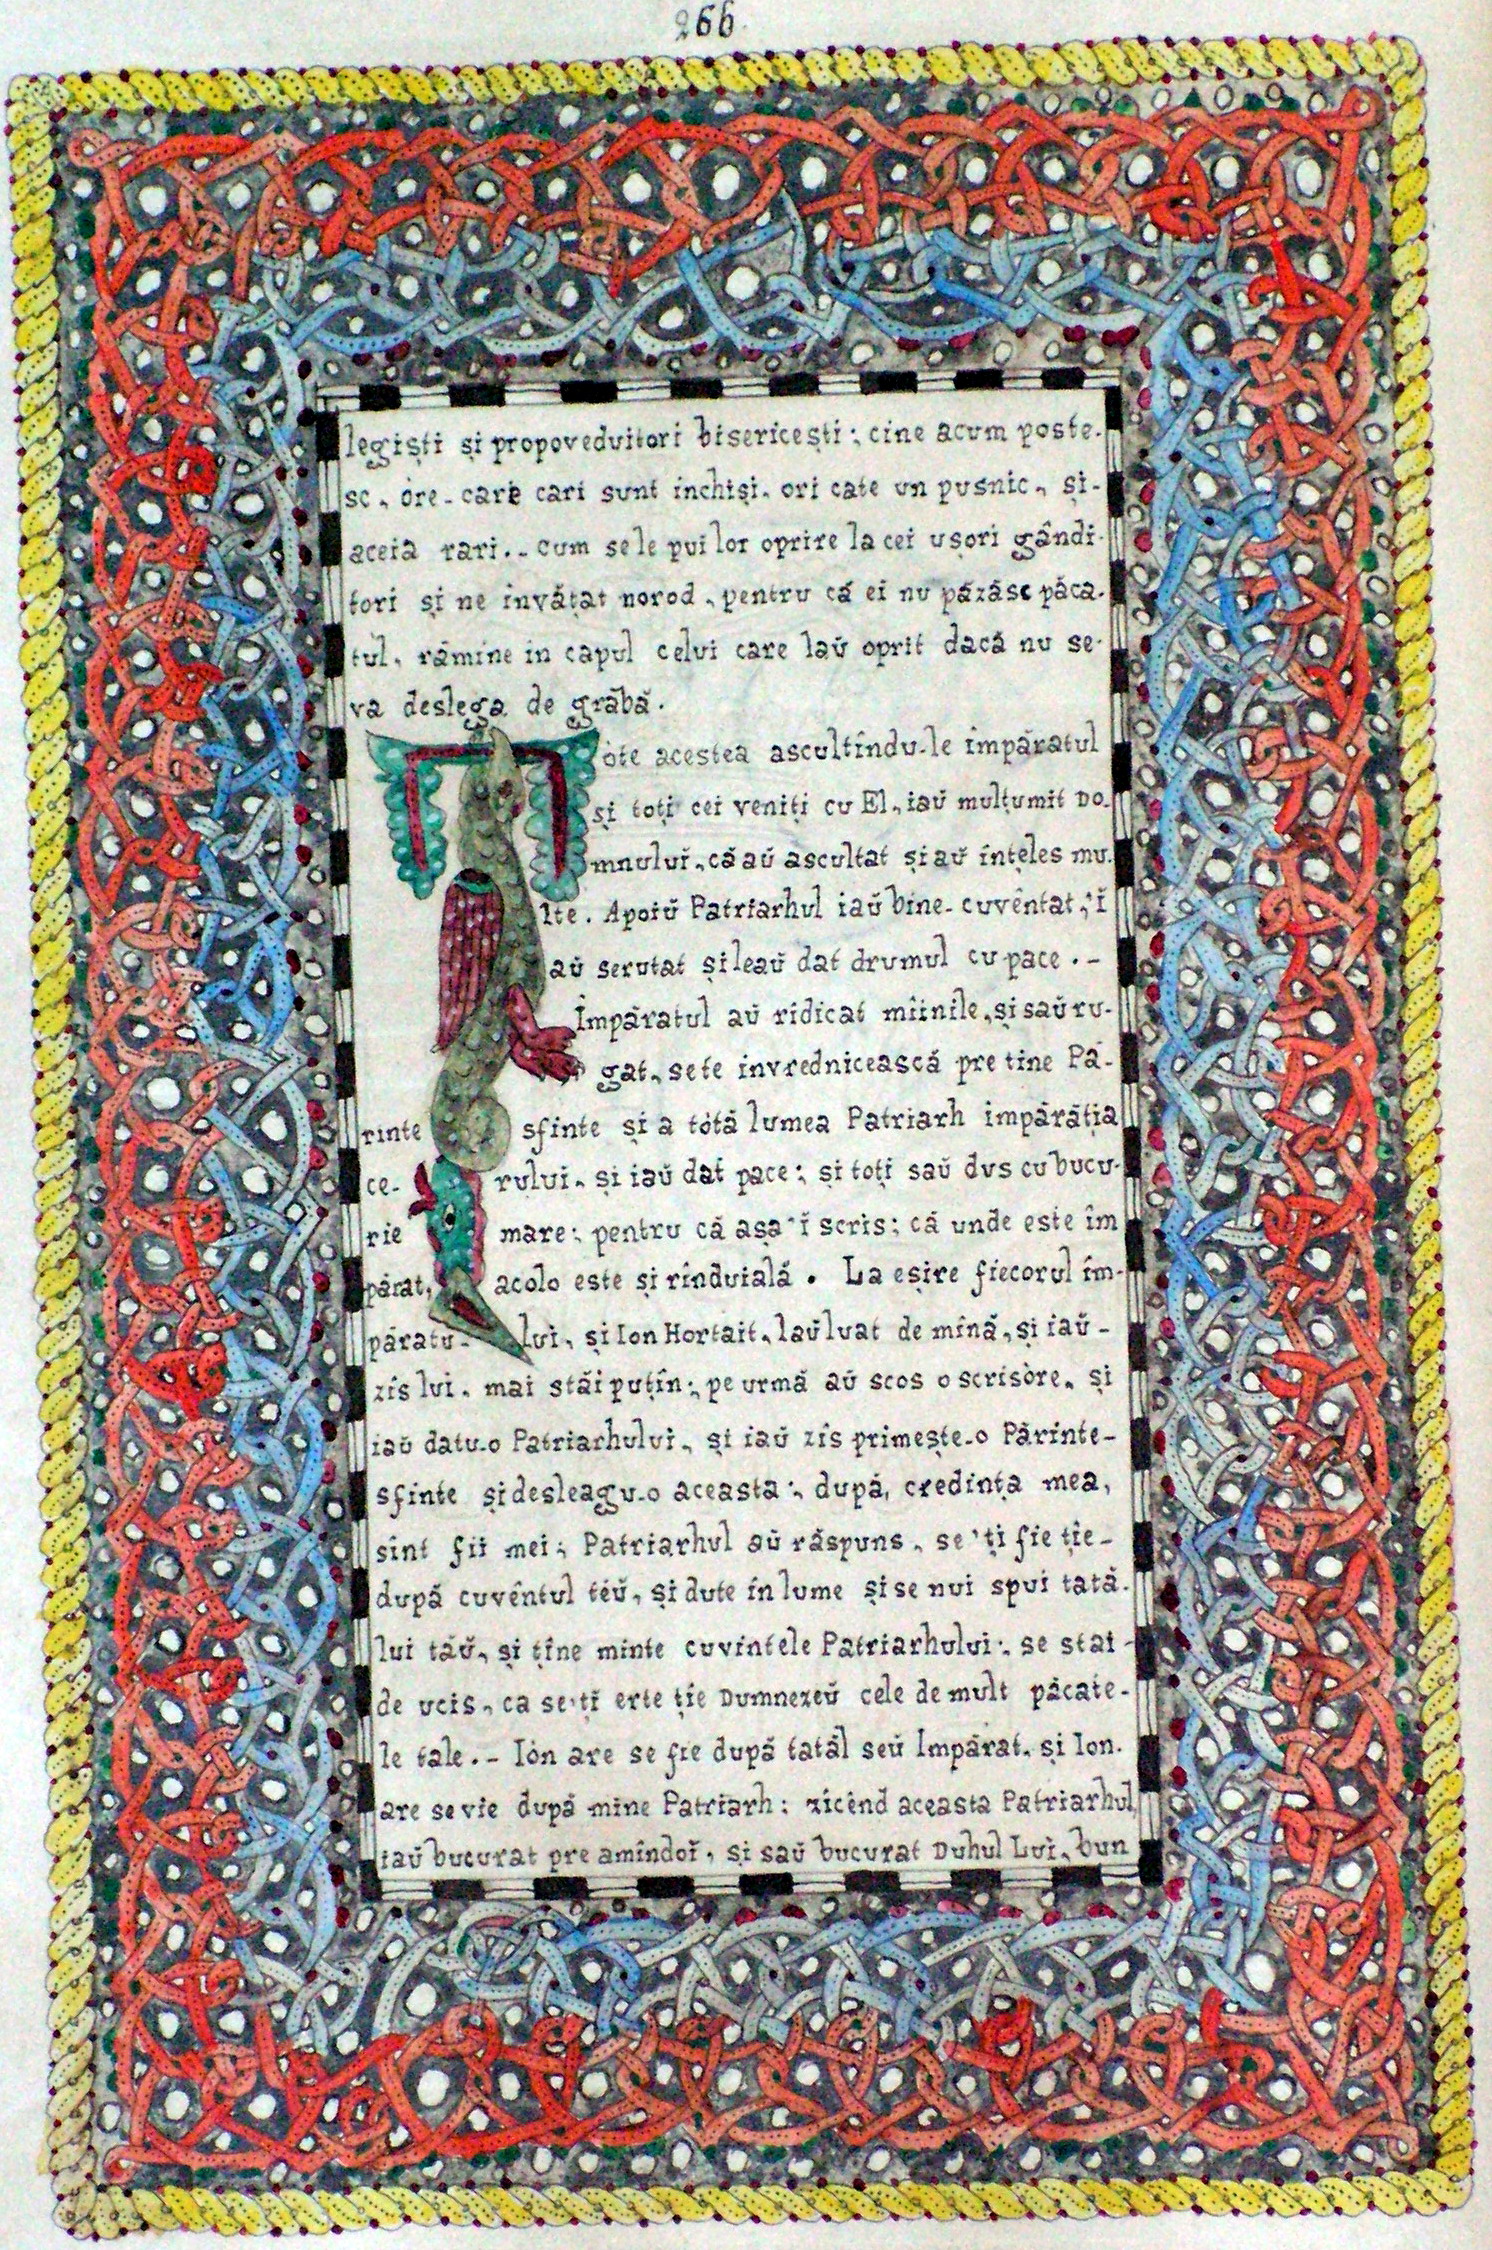 266
legiști și propoveduitori bisericești; cine acum poste.
sc, óre-care cari sunt inchiși, ori cate un pusnic, și-
aceia rari.. cum se le pui lor oprire la cei ușori gândi-
tori și ne invățat norod, pentru că ei nu păzăsc păca-
tul, rămine in capul celui care laŭ oprit dacă nu se-
va deslega de grăbă.
Tóte acestea ascultîndu-le împăratul
și toți cei veniți cu El, iaŭ mulțumit Do-
mnuluĭ, că aŭ ascultat și aŭ înțeles mu-
lte. Apoiŭ Patriarhul iaŭ bine-cuvêntat, 'ĭ
aŭ serutat și leaŭ dat drumul cu pace.-
Împăratul aŭ ridicat mîinile, și saŭ ru-
gat, se te invrednicească pre tine Pă-
rinte sfinte și a tótă lumea Patriarh impărăția
ce-rului, și iaŭ dat pace; și toți saŭ dus cu bucu-
rie mare; pentru că așa 'ĭ scris; că unde este îm
părat, acolo este și rînduială. La eșire fiecorul îm-
păratu-lui, și Ion Hortait, laŭ luat de mînă, și iaŭ-
zîs lui, mai stăi puțîn; pe urmă aŭ scos o scrisòre, și
iaŭ datu-o Patriarhului, și iaŭ zîs primește-o Părinte-
sfinte și desleagu-o aceasta; după, credința mea,
sînt fii mei; Patriarhul aŭ răspuns, se 'ți fie țîe-
după cuvêntul tĕŭ, și dute în lume și se nui spui tată-
lui tăŭ, și țîne minte cuvintele Patriarhului; se stai-
de ucis, ca se 'țĭ erte țîe Dumnezeŭ cele de mult păcate-
le tale.- Ión are se fie după tatăl seŭ Impărat, și Ion.
are se vie după mine Patriarh: zicênd aceasta Patriarhul,
iaŭ bucurat pre amîndoĭ, și saŭ bucurat Duhul Lui, bun